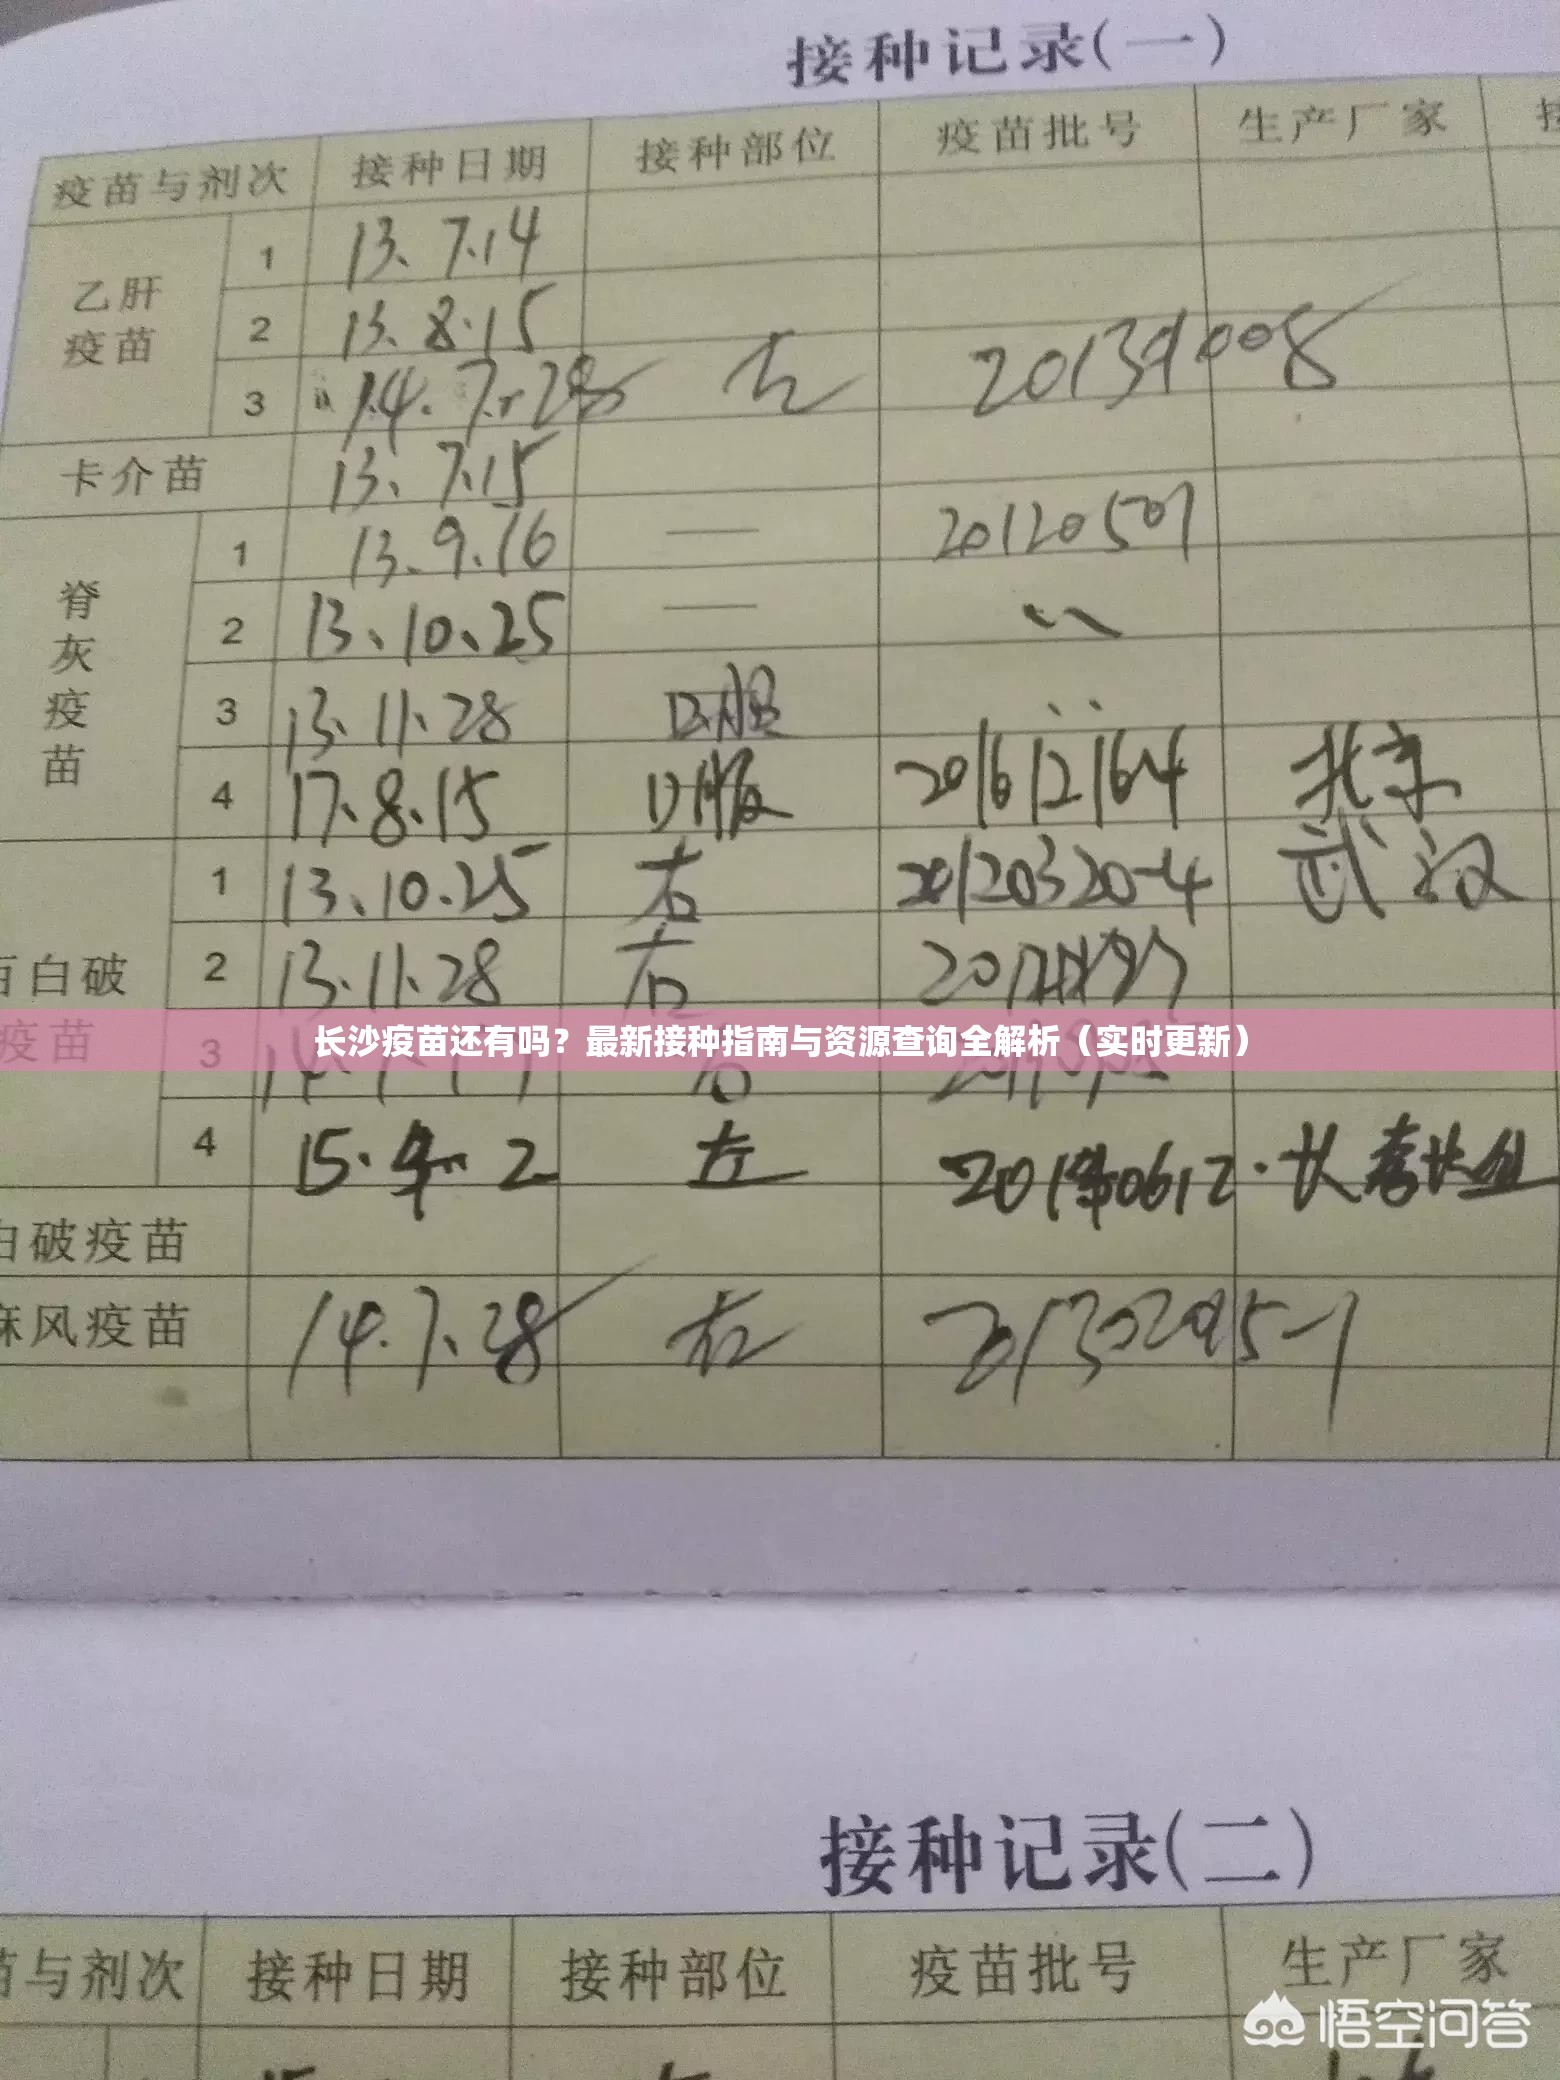 接种记录(一)
疫苗与剂次 接种日期 接种部位 疫苗批号 生产厂家
乙肝疫苗
1 13.7.14
2 13.8.15
3 14.7.28 左
卡介苗 13.7.15
脊灰疫苗
1 13.9.16 — 20120507
2 13.10.25 —
3 13.11.28 口服
4 17.8.15 口服 201612164 北京
百白破疫苗
1 13.10.25 右 20120320-4 武汉
2 13.11.28 右
长沙疫苗还有吗？最新接种指南与资源查询全解析（实时更新）
3
4 左
白破疫苗
麻风疫苗 14.7.28
接种记录(二)
苗与剂次 接种日期 接种部位 疫苗批号 生产厂家
悟空问答